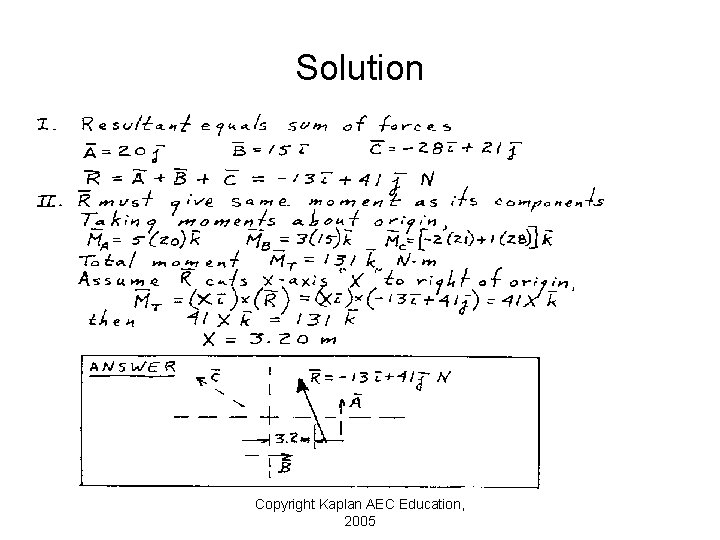 Solution
I. Resultant equals sum of forces
Ā = 20 j̄ B̄ = 15 ī C̄ = -28 ī + 21 j̄
R̄ = Ā + B̄ + C̄ = -13 ī + 41 j̄ N
II. R̄ must give same moment as its components
Taking moments about origin,
M̄A = 5(20)k̄ M̄B = 3(15)k̄ M̄C = [-2(21)+1(28)]k̄
Total moment M̄T = 131 k̄ N-m
Assume R̄ cuts X-axis "X" to right of origin,
M̄T = (Xī)×(R̄) = (Xī)×(-13ī+41j̄) = 41X k̄
then 41 X k̄ = 131 k̄
X = 3.20 m
ANSWER
C̄ R̄ = -13 ī + 41 j̄ N
Ā
3.2m
B̄
Copyright Kaplan AEC Education,
2005